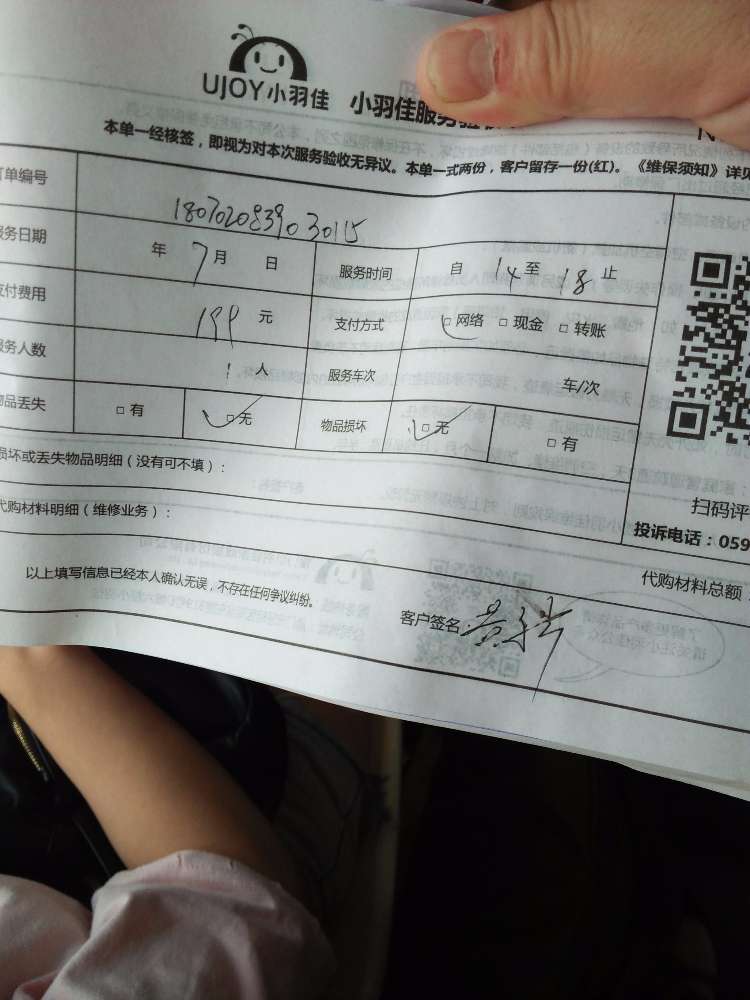 UJOY小羽佳 小羽佳服务验
本单一经核签，即视为对本次服务验收无异议。本单一式两份，客户留存一份(红)。《维保须知》详见
订单编号 1807020839030115
服务日期 年 7月 日 服务时间 自 14 至 18 止
支付费用 199 元 支付方式 □网络 □现金 □转账
服务人数 1 人 服务车次 车/次
物品丢失 □有 □无 物品损坏 □无 □有
损坏或丢失物品明细（没有可不填）：
扫码评
投诉电话：059
代购材料明细（维修业务）：
代购材料总额：
以上填写信息已经本人确认无误，不存在任何争议纠纷。
客户签名: